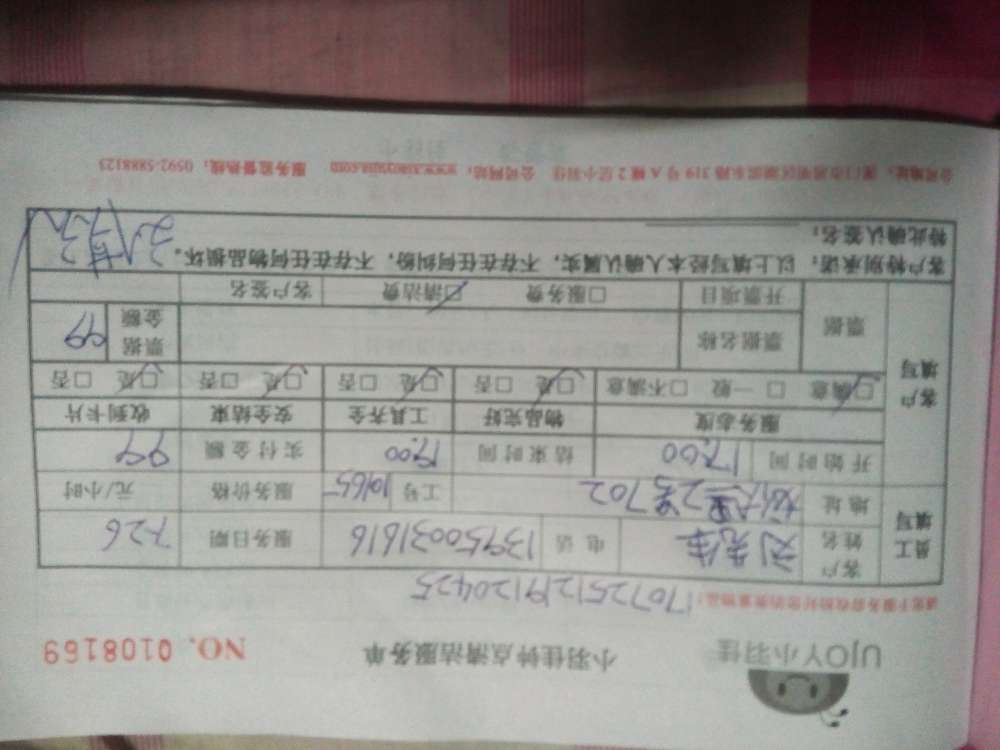 UJOY小羽佳 小羽佳钟点清洁服务单 NO. 0108169
请您于服务前收拾好您的贵重物品: 1707251219120425
员工填写 客户姓名 刘先生 电话 13950031616 服务日期 7-26
地址 2号702 工号 10165 服务价格 元/小时
开始时间 17:00 结束时间 19:00 实付金额 99
客户填写 服务态度 物品完好 工具齐全 安全结束 收到卡片
☑满意 □一般 □不满意 ☑是 □否 ☑是 □否 ☑是 □否 ☑是 □否
票据 票据名称 票据金额 99
开票项目 □服务费 ☑清洁费 客户签名
客户特别承诺: 以上填写经本人确认属实,不存在任何纠纷,不存在任何物品损坏。
特此确认签名:
公司地址: 厦门市思明区湖滨东路 319 号 A 幢 2 层小羽佳 公司网站: www.xiaoyujia.com 服务监督热线: 0592-5888123